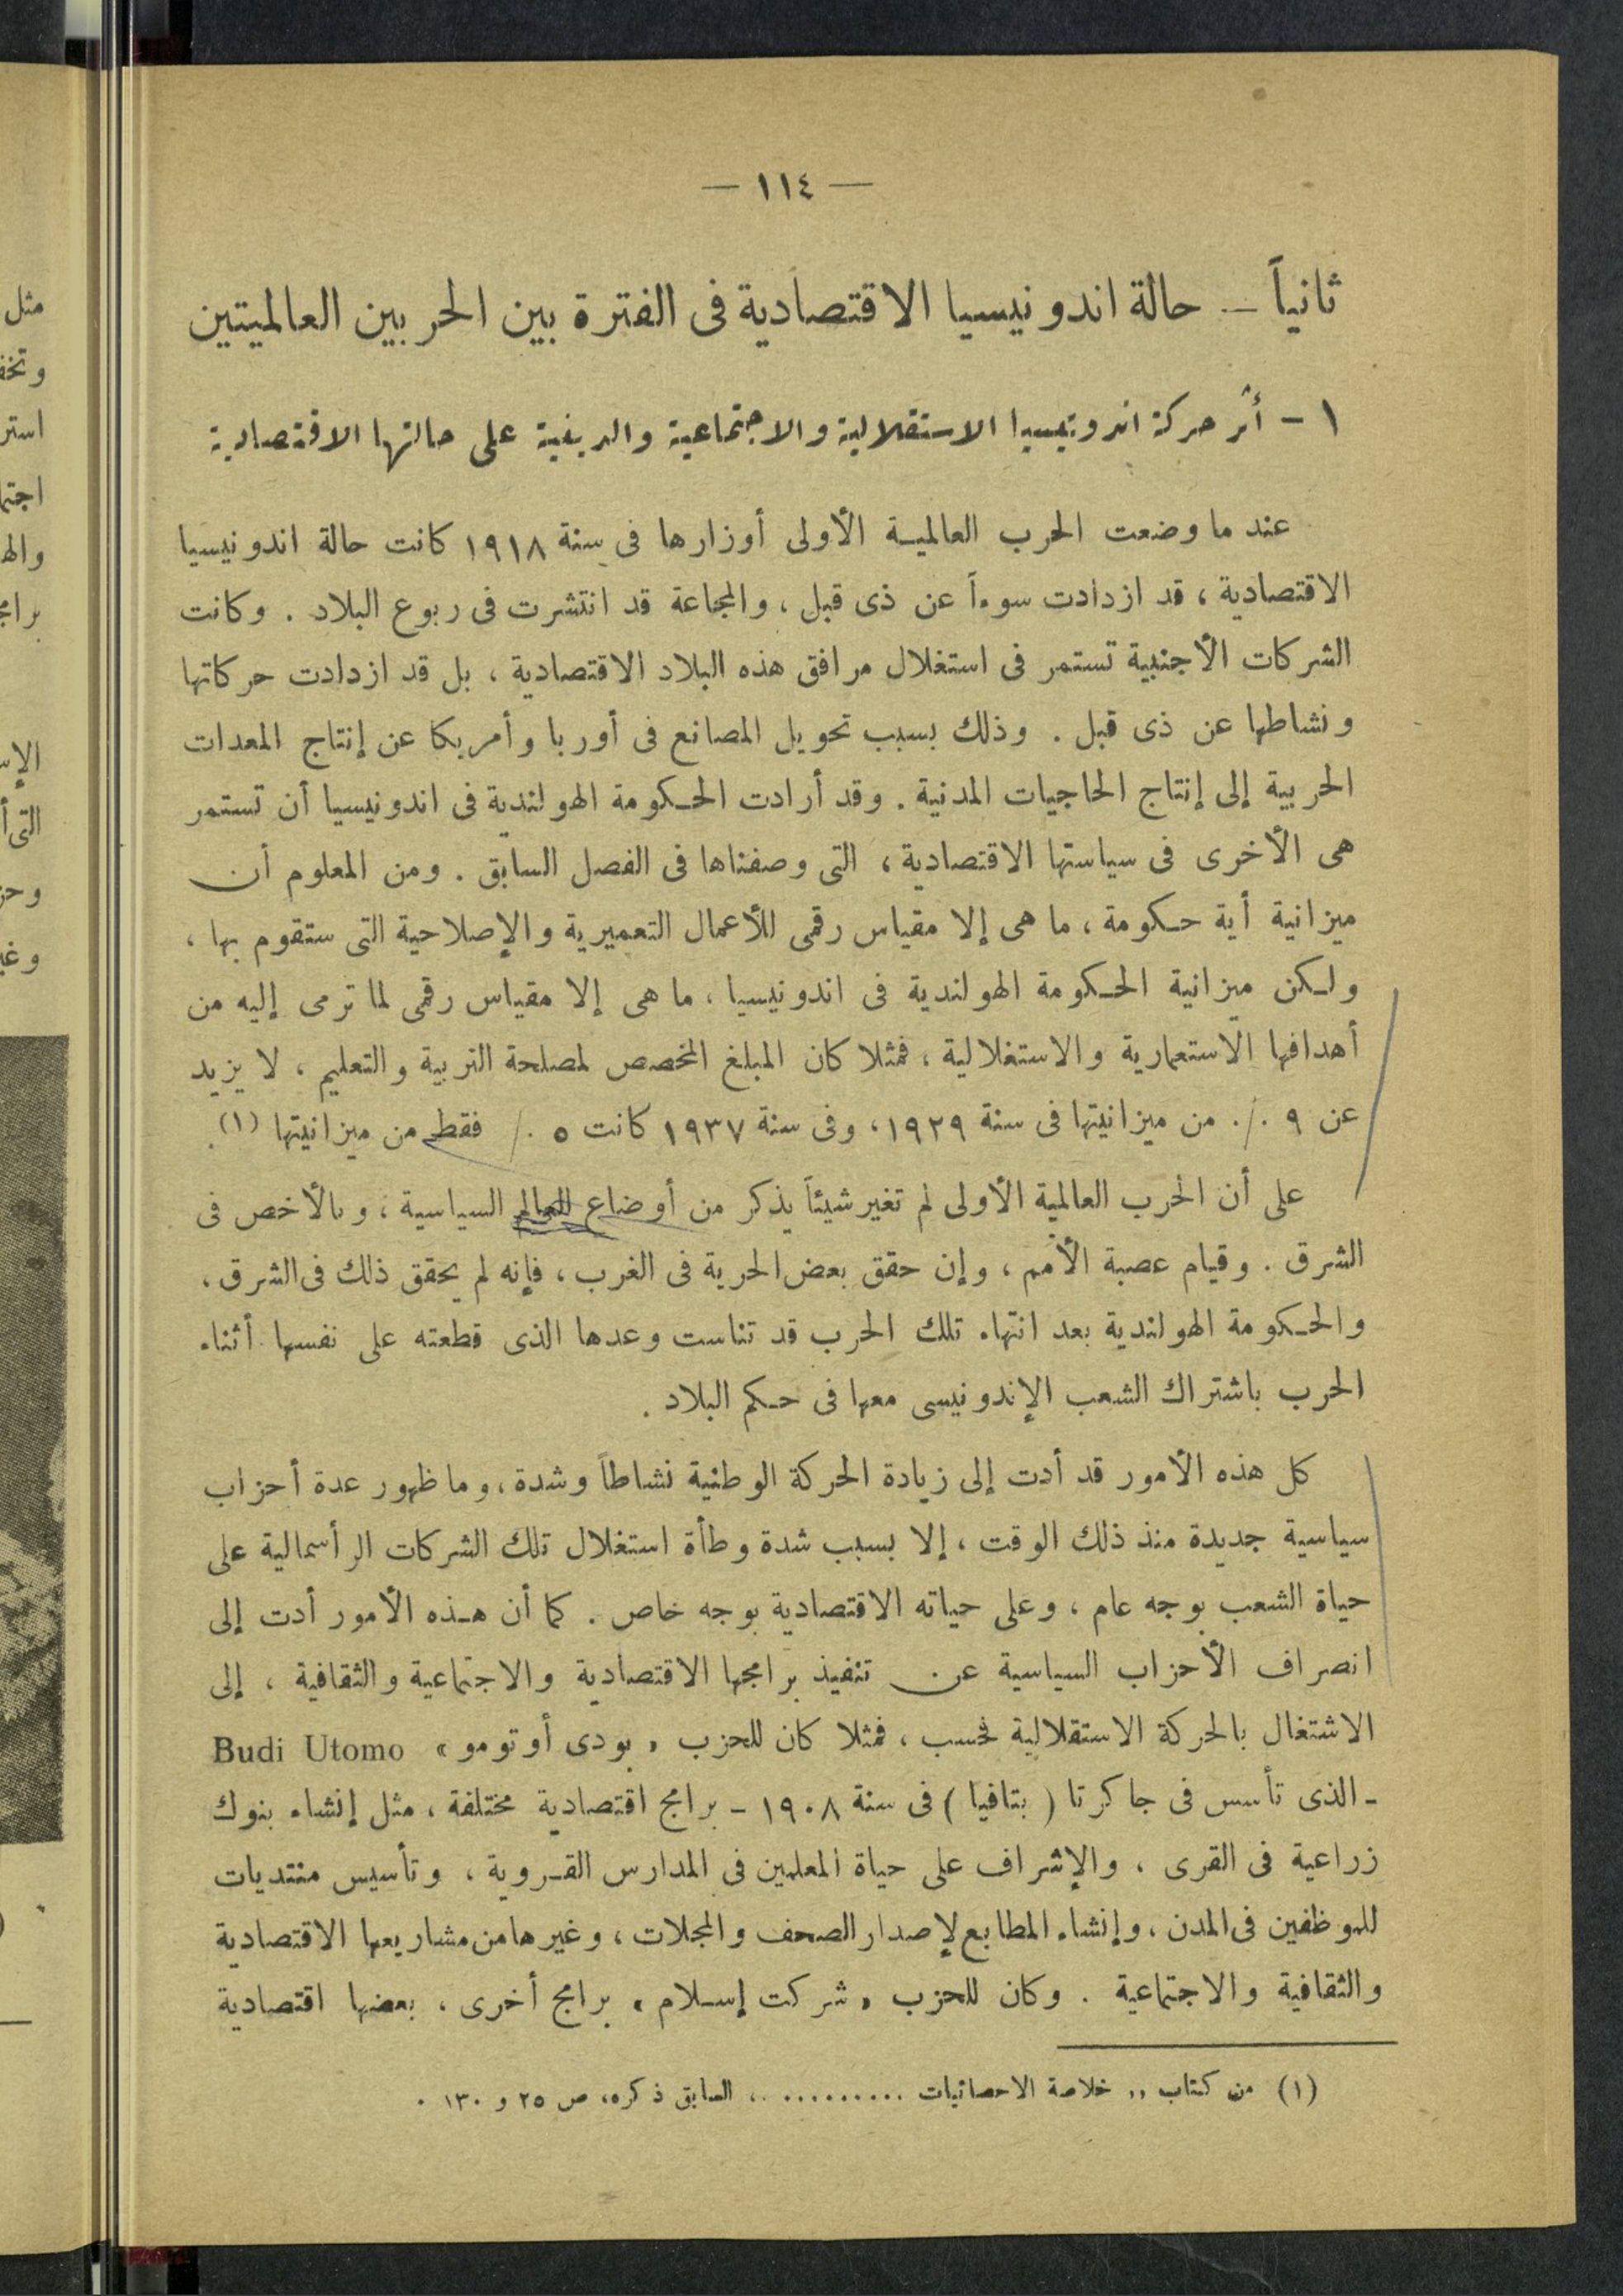 — ١١٤ —
ثانياً — حالة اندونيسيا الاقتصادية فى الفترة بين الحربين العالميتين
١ - أثر حركة اندونيسيا الاستقلالية والاجتماعية والدينية على حالتها الاقتصادية
عند ما وضعت الحرب العالمية الأولى أوزارها فى سنة ١٩١٨ كانت حالة اندونيسيا
الاقتصادية ، قد ازدادت سوءاً عن ذى قبل ، والمجاعة قد انتشرت فى ربوع البلاد . وكانت
الشركات الأجنبية تستمر فى استغلال مرافق هذه البلاد الاقتصادية ، بل قد ازدادت حركاتها
ونشاطها عن ذى قبل . وذلك بسبب تحويل المصانع فى أوربا وأمريكا عن إنتاج المعدات
الحربية إلى إنتاج الحاجيات المدنية . وقد أرادت الحكومة الهولندية فى اندونيسيا أن تستمر
هى الأخرى فى سياستها الاقتصادية ، التى وصفناها فى الفصل السابق . ومن المعلوم أن
ميزانية أية حكومة ، ما هى إلا مقياس رقمى للأعمال التعميرية والإصلاحية التى ستقوم بها ،
ولكن ميزانية الحكومة الهولندية فى اندونيسيا ، ما هى إلا مقياس رقمى لما ترمى إليه من
أهدافها الاستعمارية والاستغلالية ، فمثلا كان المبلغ المخصص لمصلحة التربية والتعليم ، لا يزيد
عن ٩ ./. من ميزانيتها فى سنة ١٩٢٩ ، وفى سنة ١٩٣٧ كانت ٥ ./ فقط من ميزانيتها (١) .
على أن الحرب العالمية الأولى لم تغير شيئاً يذكر من أوضاع العالم السياسية ، وبالأخص فى
الشرق . وقيام عصبة الأمم ، وإن حقق بعض الحرية فى الغرب ، فإنه لم يحقق ذلك فى الشرق ،
والحكومة الهولندية بعد انتهاء تلك الحرب قد تناست وعدها الذى قطعته على نفسها أثناء
الحرب باشتراك الشعب الإندونيسى معها فى حكم البلاد .
كل هذه الأمور قد أدت إلى زيادة الحركة الوطنية نشاطاً وشدة ، وما ظهور عدة أحزاب
سياسية جديدة منذ ذلك الوقت ، إلا بسبب شدة وطأة استغلال تلك الشركات الرأسمالية على
حياة الشعب بوجه عام ، وعلى حياته الاقتصادية بوجه خاص . كما أن هذه الأمور أدت إلى
انصراف الأحزاب السياسية عن تنفيذ برامجها الاقتصادية والاجتماعية والثقافية ، إلى
الاشتغال بالحركة الاستقلالية فحسب ، فمثلا كان للحزب « بودى أوتومو » Budi Utomo
- الذى تأسس فى جاكرتا ( بتافيا ) فى سنة ١٩٠٨ - برامج اقتصادية مختلفة ، مثل إنشاء بنوك
زراعية فى القرى ، والإشراف على حياة المعلمين فى المدارس القروية ، وتأسيس منتديات
للموظفين فى المدن ، وإنشاء المطابع لإصدار الصحف والمجلات ، وغيرها من مشاريعها الاقتصادية
والثقافية والاجتماعية . وكان للحزب « شركت إسلام » برامج أخرى ، بعضها اقتصادية
(١) من كتاب ,, خلاصة الاحصائيات .......... ،، السابق ذكره، ص ٢٥ و ١٣٠ .
مثل
وتخف
استر
اجتما
واله
برامج
الإس
التى أ
وحز
وغي